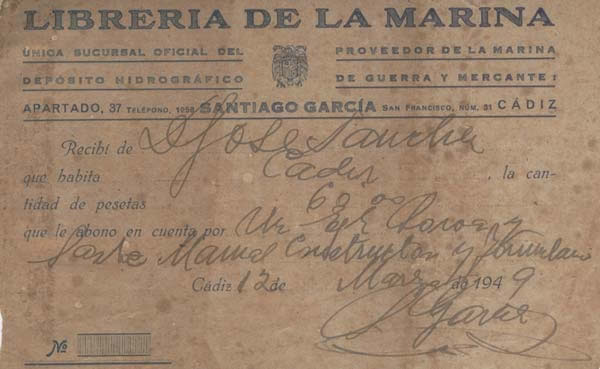 LIBRERIA DE LA MARINA
ÚNICA SUCURSAL OFICIAL DEL
DEPÓSITO HIDROGRÁFICO
PROVEEDOR DE LA MARINA
DE GUERRA Y MERCANTE:
APARTADO, 37 TELÉFONO, 1058 SANTIAGO GARCÍA SAN FRANCISCO, NÚM. 31 CÁDIZ
Recibí de D Jose Sanchez
que habita Cadiz, la can-
tidad de pesetas 60,00
que le abono en cuenta por Un
Manual Constructor y Formulario
Cádiz 12 de Marzo de 1949
S Garcia
No